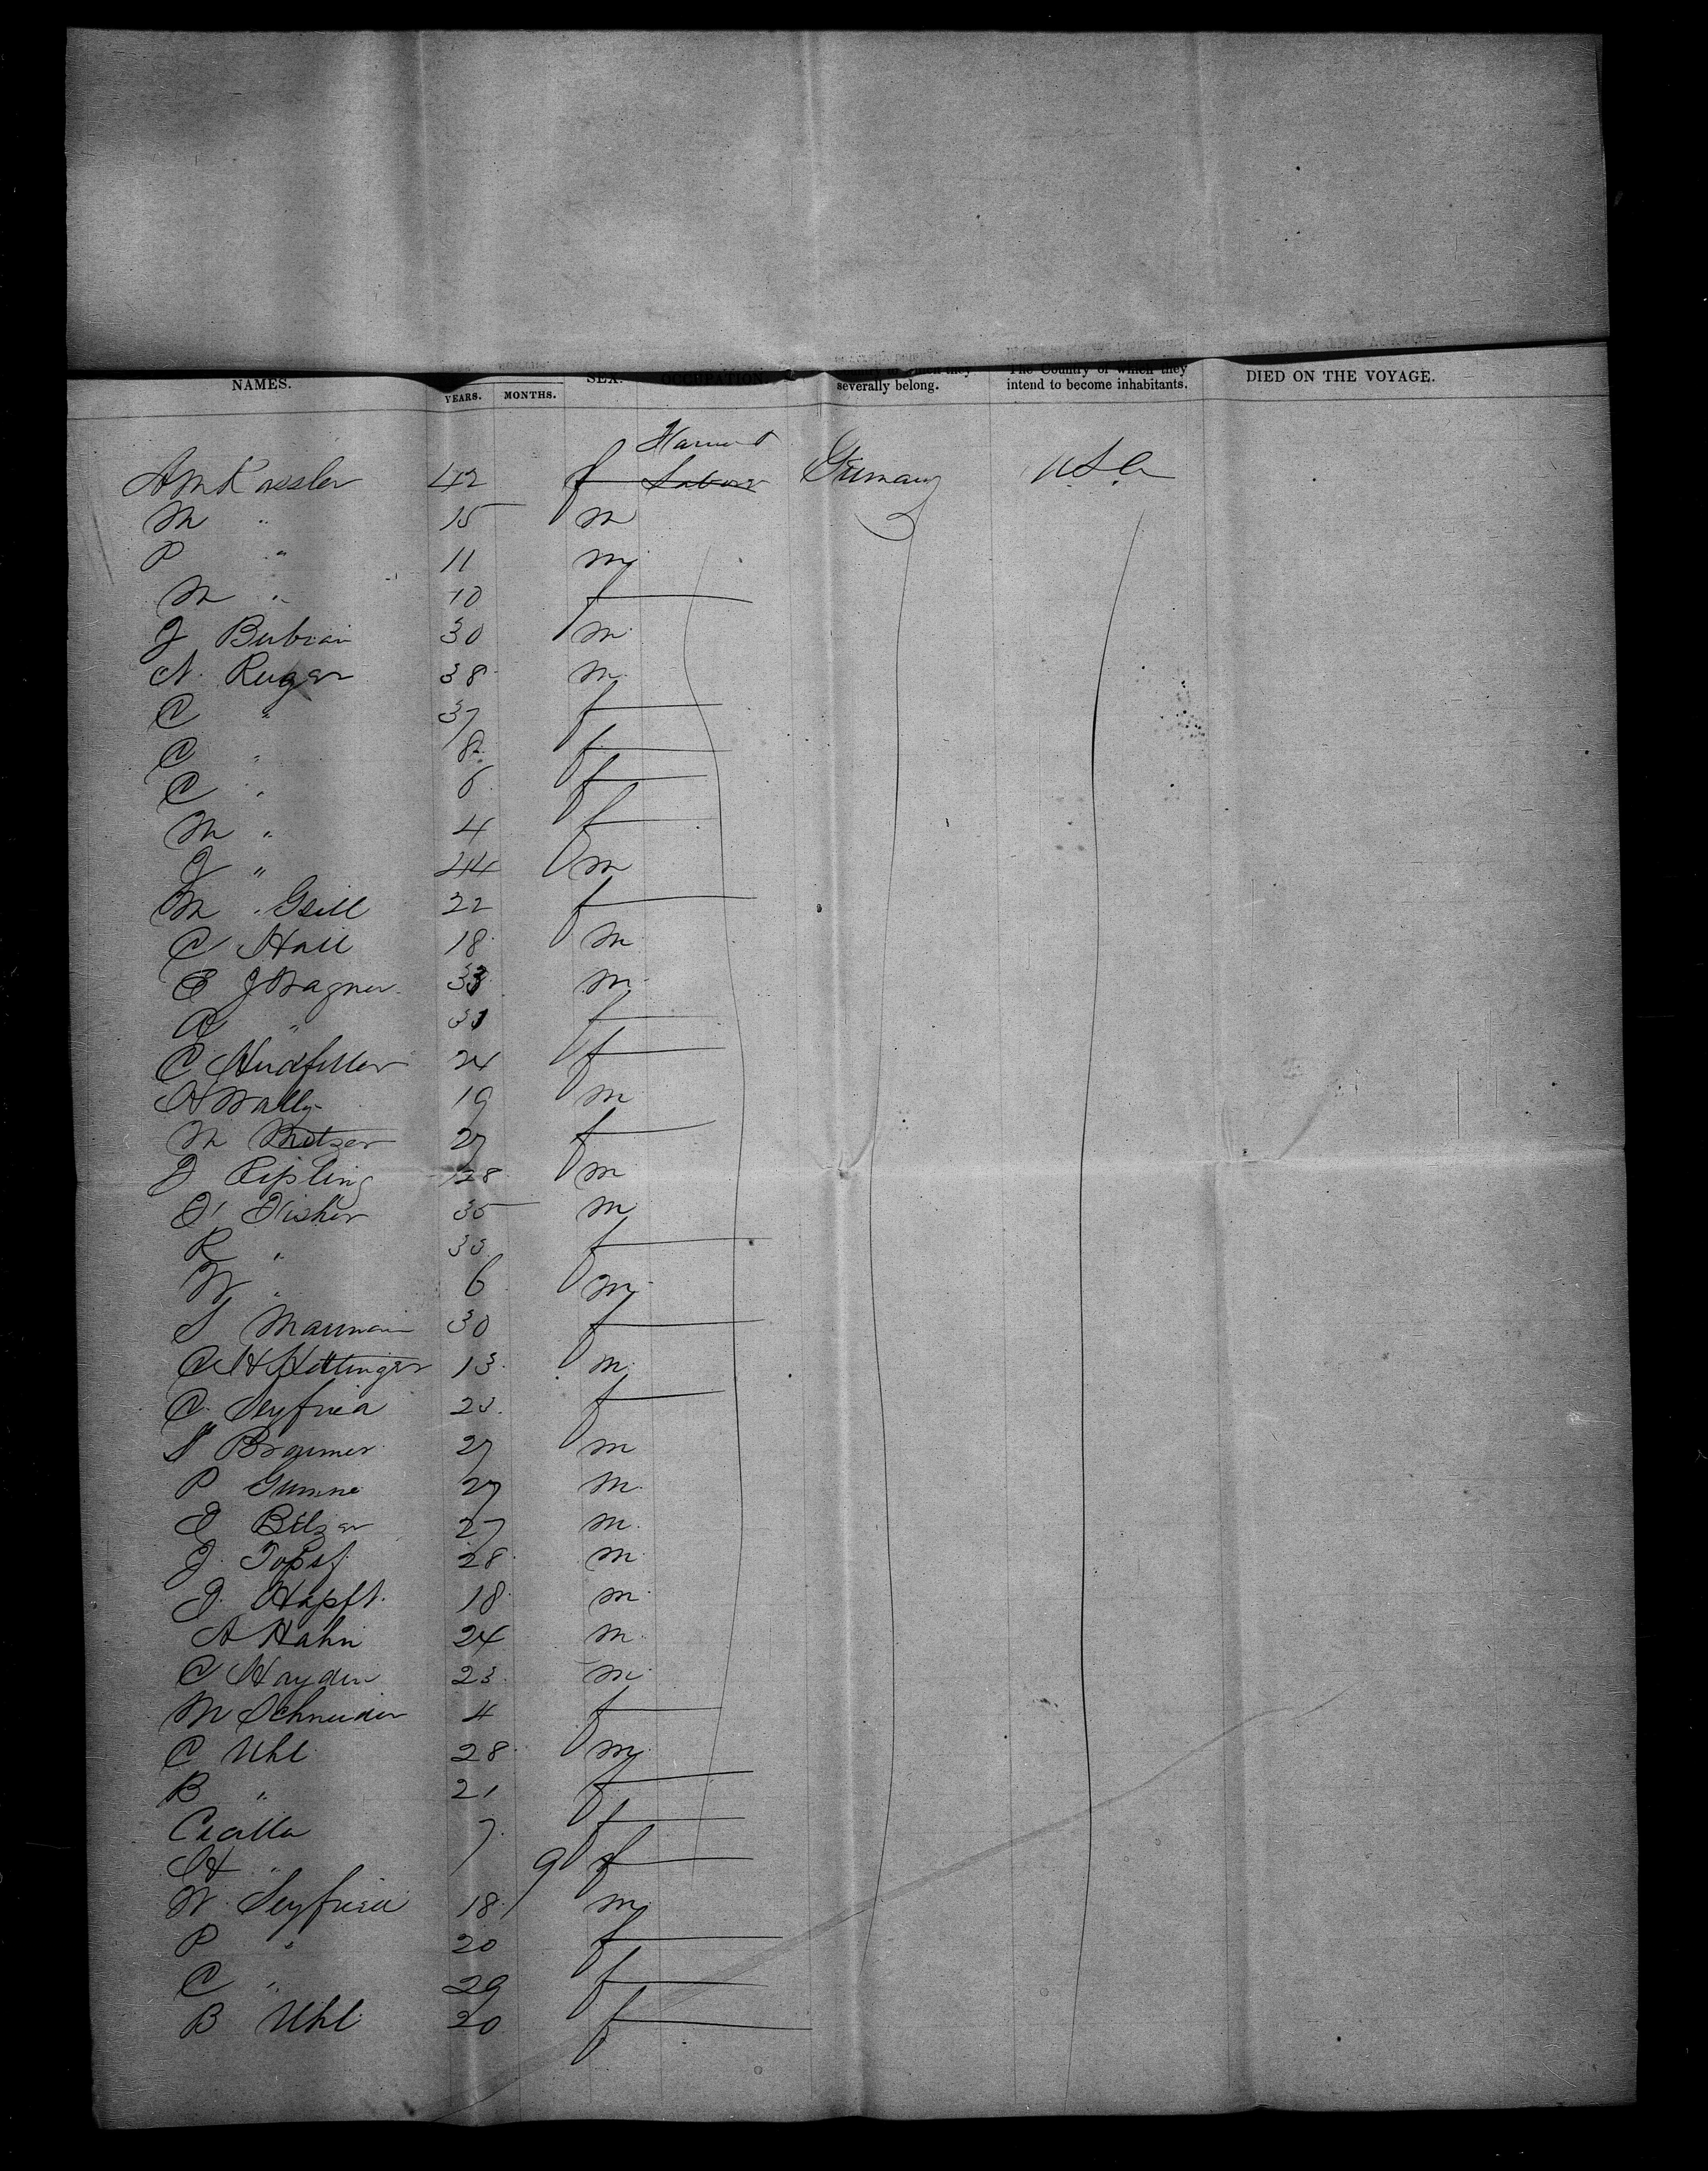 NAMES. YEARS. MONTHS. SEX. OCCUPATION. severally belong. The Country of which they intend to become inhabitants. DIED ON THE VOYAGE.
A M Kassler 42 f Germany U.S.A
M " 15 m
P " 11 m
M " 10 f
J 30 m
N. Rugar 38 m
C " 37 f
C " 8 f
C " 6 f
M " 4 f
J " 24 m
M " Gsill 22 f
C Hall 18 m
E J Wagner 33 m
A " 31 f
C 24 f
A Wally 19 m
M Metzer 27 f
J Kipling 28 m
J Fisher 35 m
R " 33 f
W " 6 m
S Maunain 30 f
C H Hettinger 13 m
C. Seyfried 23 f
S Braumer 27 m
P Gumne 27 m
J Bilzer 27 m
J. Topsf 28 m
J. Hapft. 18 m
A Hahn 24 m
C Hayden 23 m
M Schneider 4 f
C Uhl 28 m
B " 21 f
7 f
H " 9 f
W. Seyfried 18 m
P " 20 f
C " 29 f
B Uhl 20 f